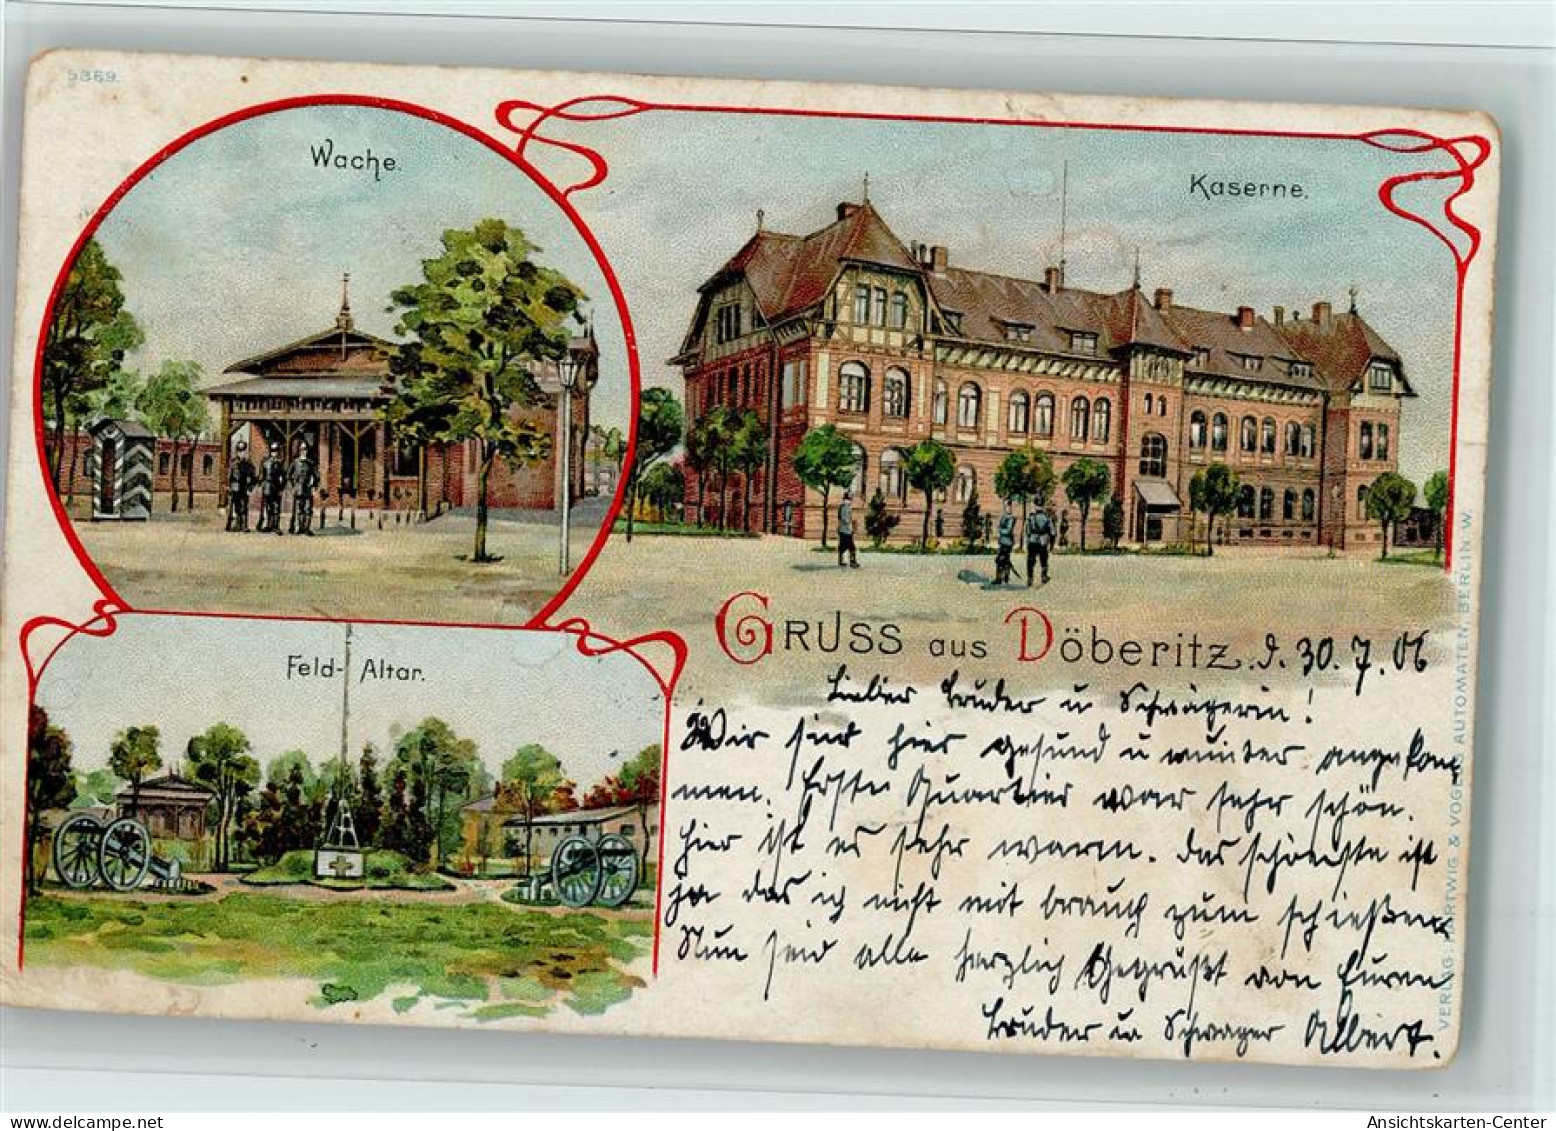 5869.
Wache.
Kaserne.
Feld-Altar.
GRUSS aus Döberitz. d. 30.7.06
Lieber Bruder u Schwägerin!
Wir sind hier gesund u munter angekom
men. Erste Quartier war sehr schön.
Hier ist es sehr warm. Das schönste ist
ja das ich nicht mit brauch zum schießen
Nun seid alle herzlich Gegrüßt von Euren
Bruder u Schwager Albert.
VERLAG HARTWIG & VOGEL'S AUTOMATEN, BERLIN W.
delcampe.net
Ansichtskarten-Center